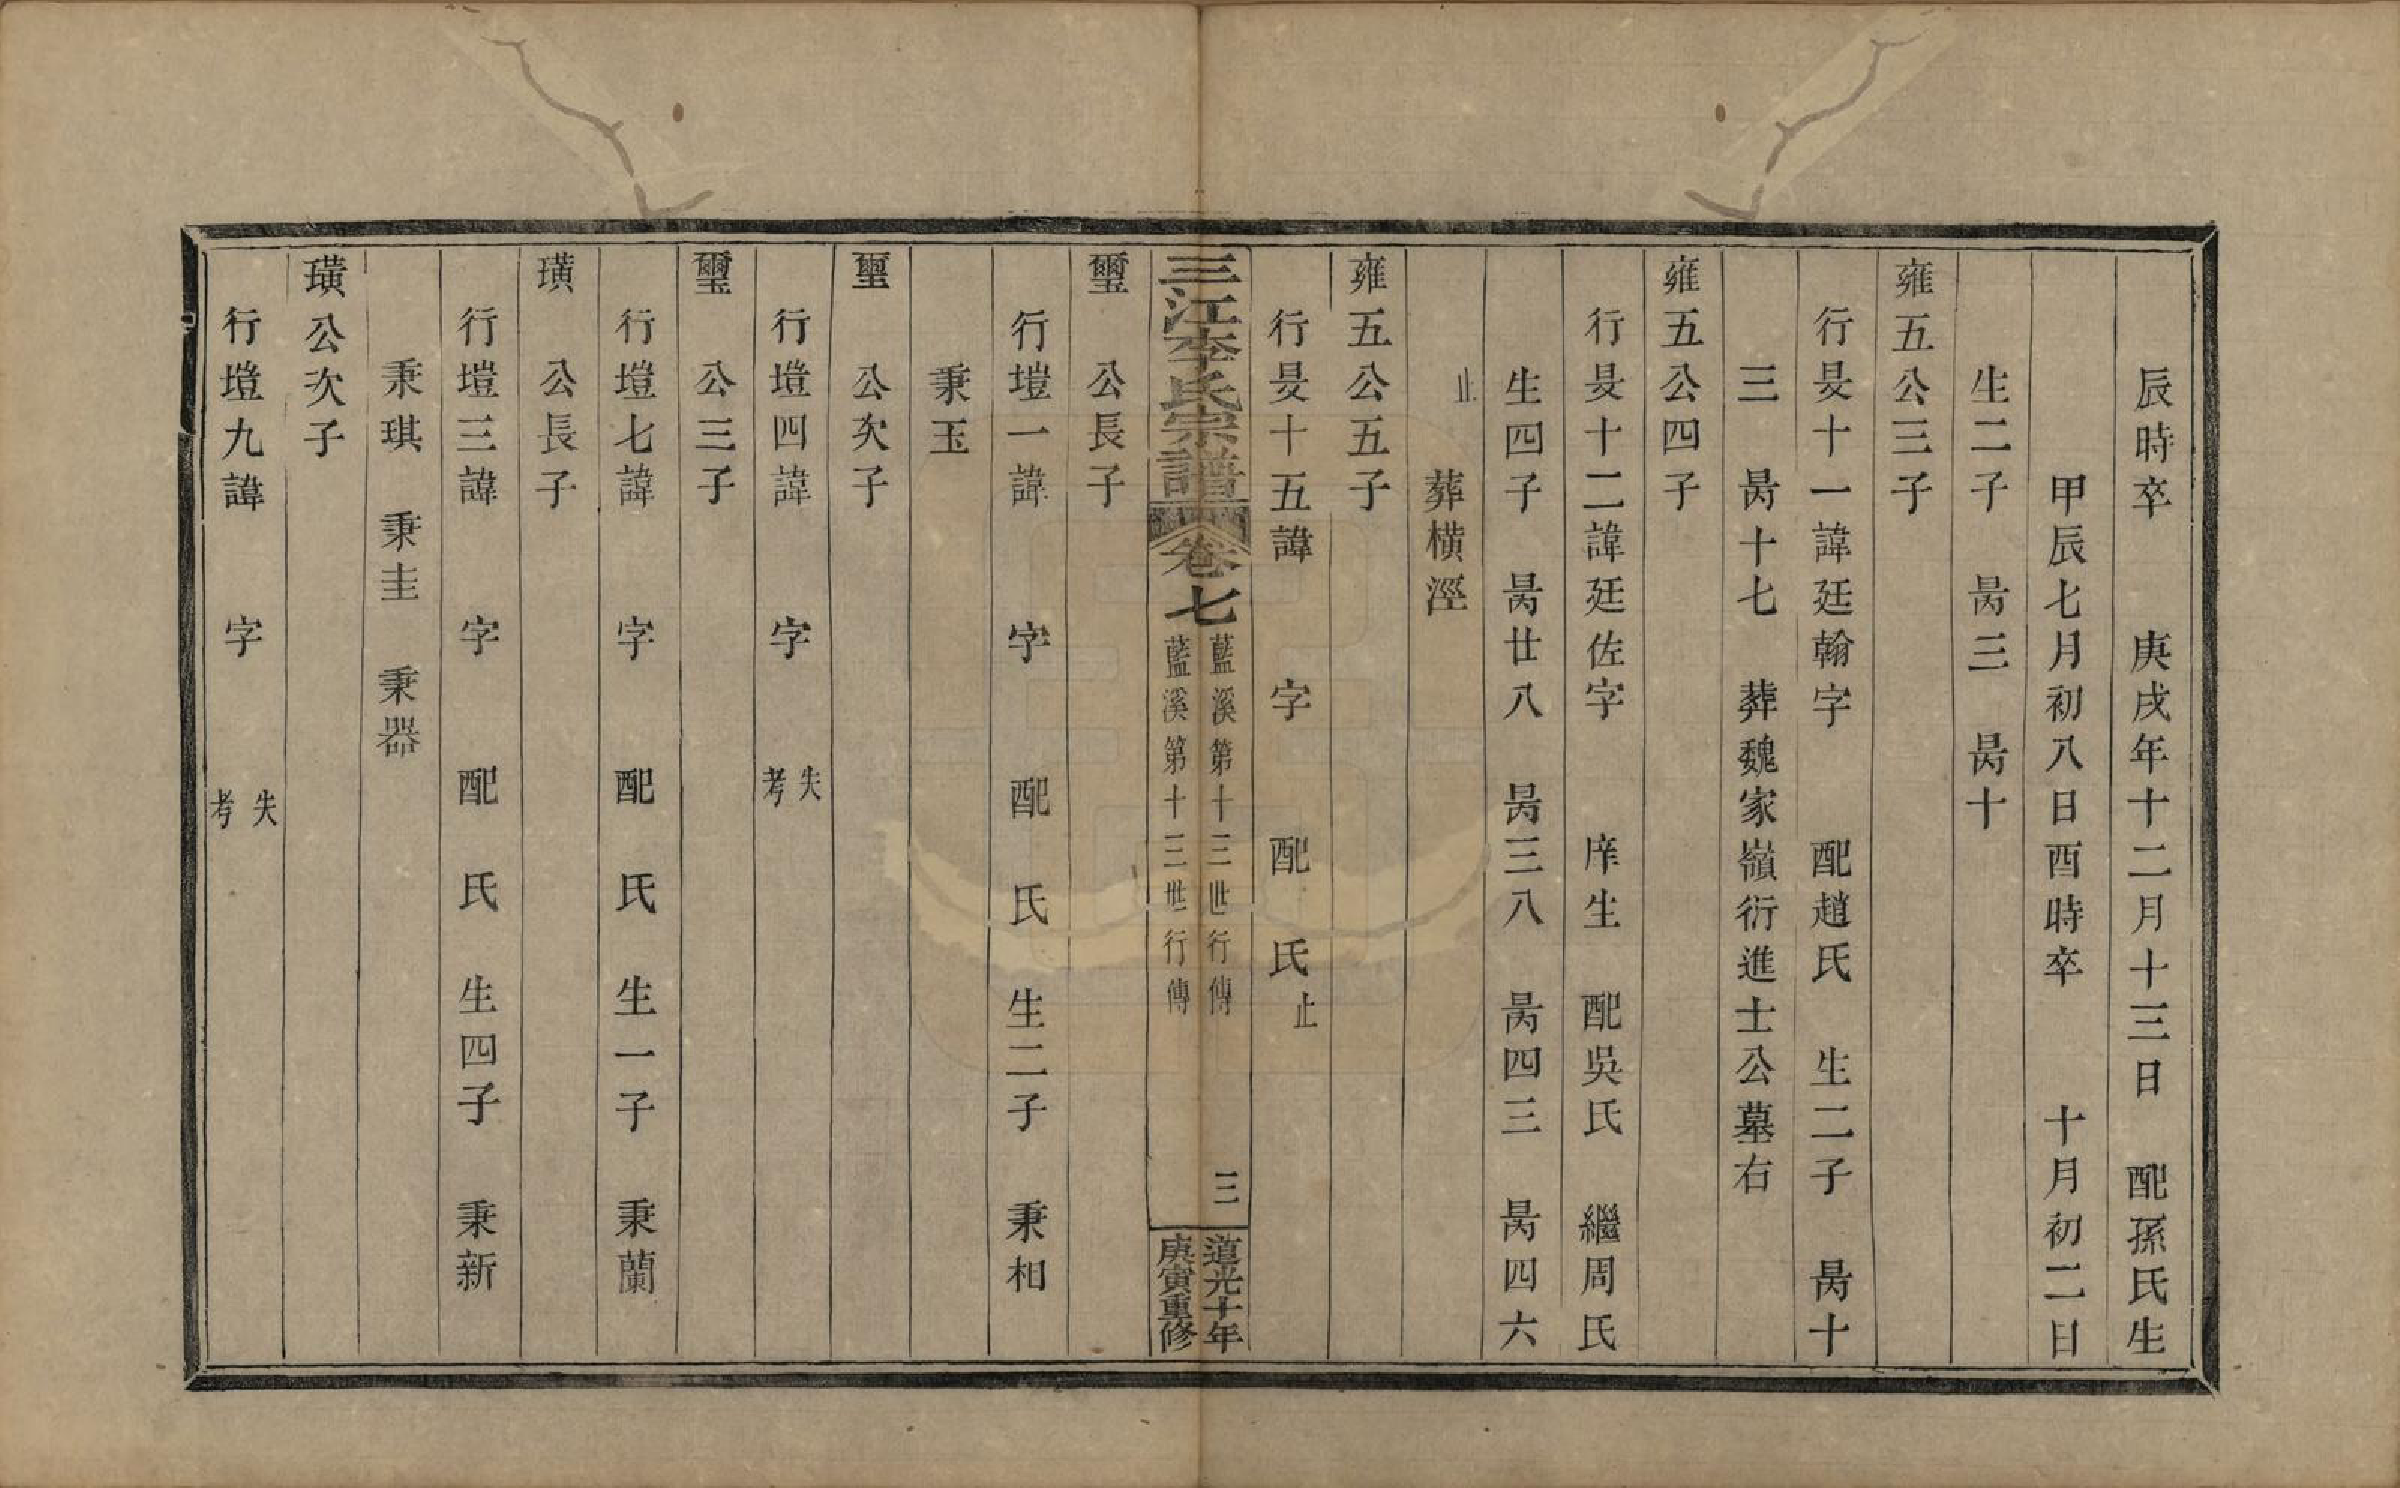 辰時卒 庚戌年十二月十三日 配孫氏生
甲辰七月初八日酉時卒 十月初二日
生二子 昺三 昺十
雍五公三子
行旻十一諱廷翰字 配趙氏 生二子 昺十
三 昺十七 葬魏家嶺衍進士公墓右
雍五公四子
行旻十二諱廷佐字 庠生 配吳氏 繼周氏
生四子 昺廿八 昺三八 昺四三 昺四六
止 葬橫涇
雍五公五子
行旻十五諱 字 配 氏 止
三江李氏宗譜 卷七 藍溪第十三世行傳 藍溪第十三世行傳 三 道光十年 庚寅重修
璽 公長子
行塏一諱 字 配 氏 生二子 秉相
秉玉
璽 公次子
行塏四諱 字 失考
璽 公三子
行塏七諱 字 配 氏 生一子 秉蘭
璜 公長子
行塏三諱 字 配 氏 生四子 秉新
秉琪 秉圭 秉器
璜公次子
行塏九諱 字 失考